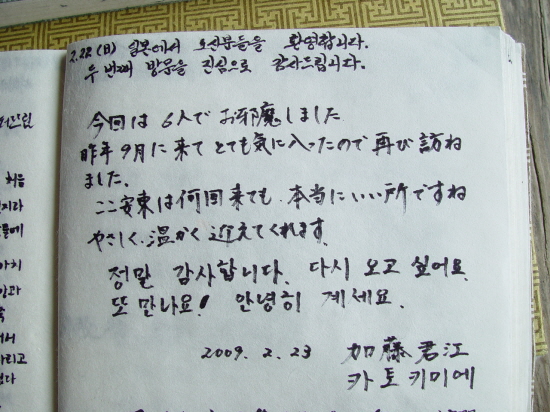 2.22(日) 일본에서 오신분들을 환영합니다.
두번째 방문을 진심으로 감사드립니다.
今回は 6人で お邪魔しました
昨年9月に来て とても気に入ったので再び訪ね
ました.
ここ安東は何回来ても、本当にいい所ですね
やさしく、温かく 迎えてくれます.
정말 감사합니다. 다시 오고 싶어요
또 만나요! 안녕히 계세요.
2009. 2. 23 加藤君江
카토키미에
처음